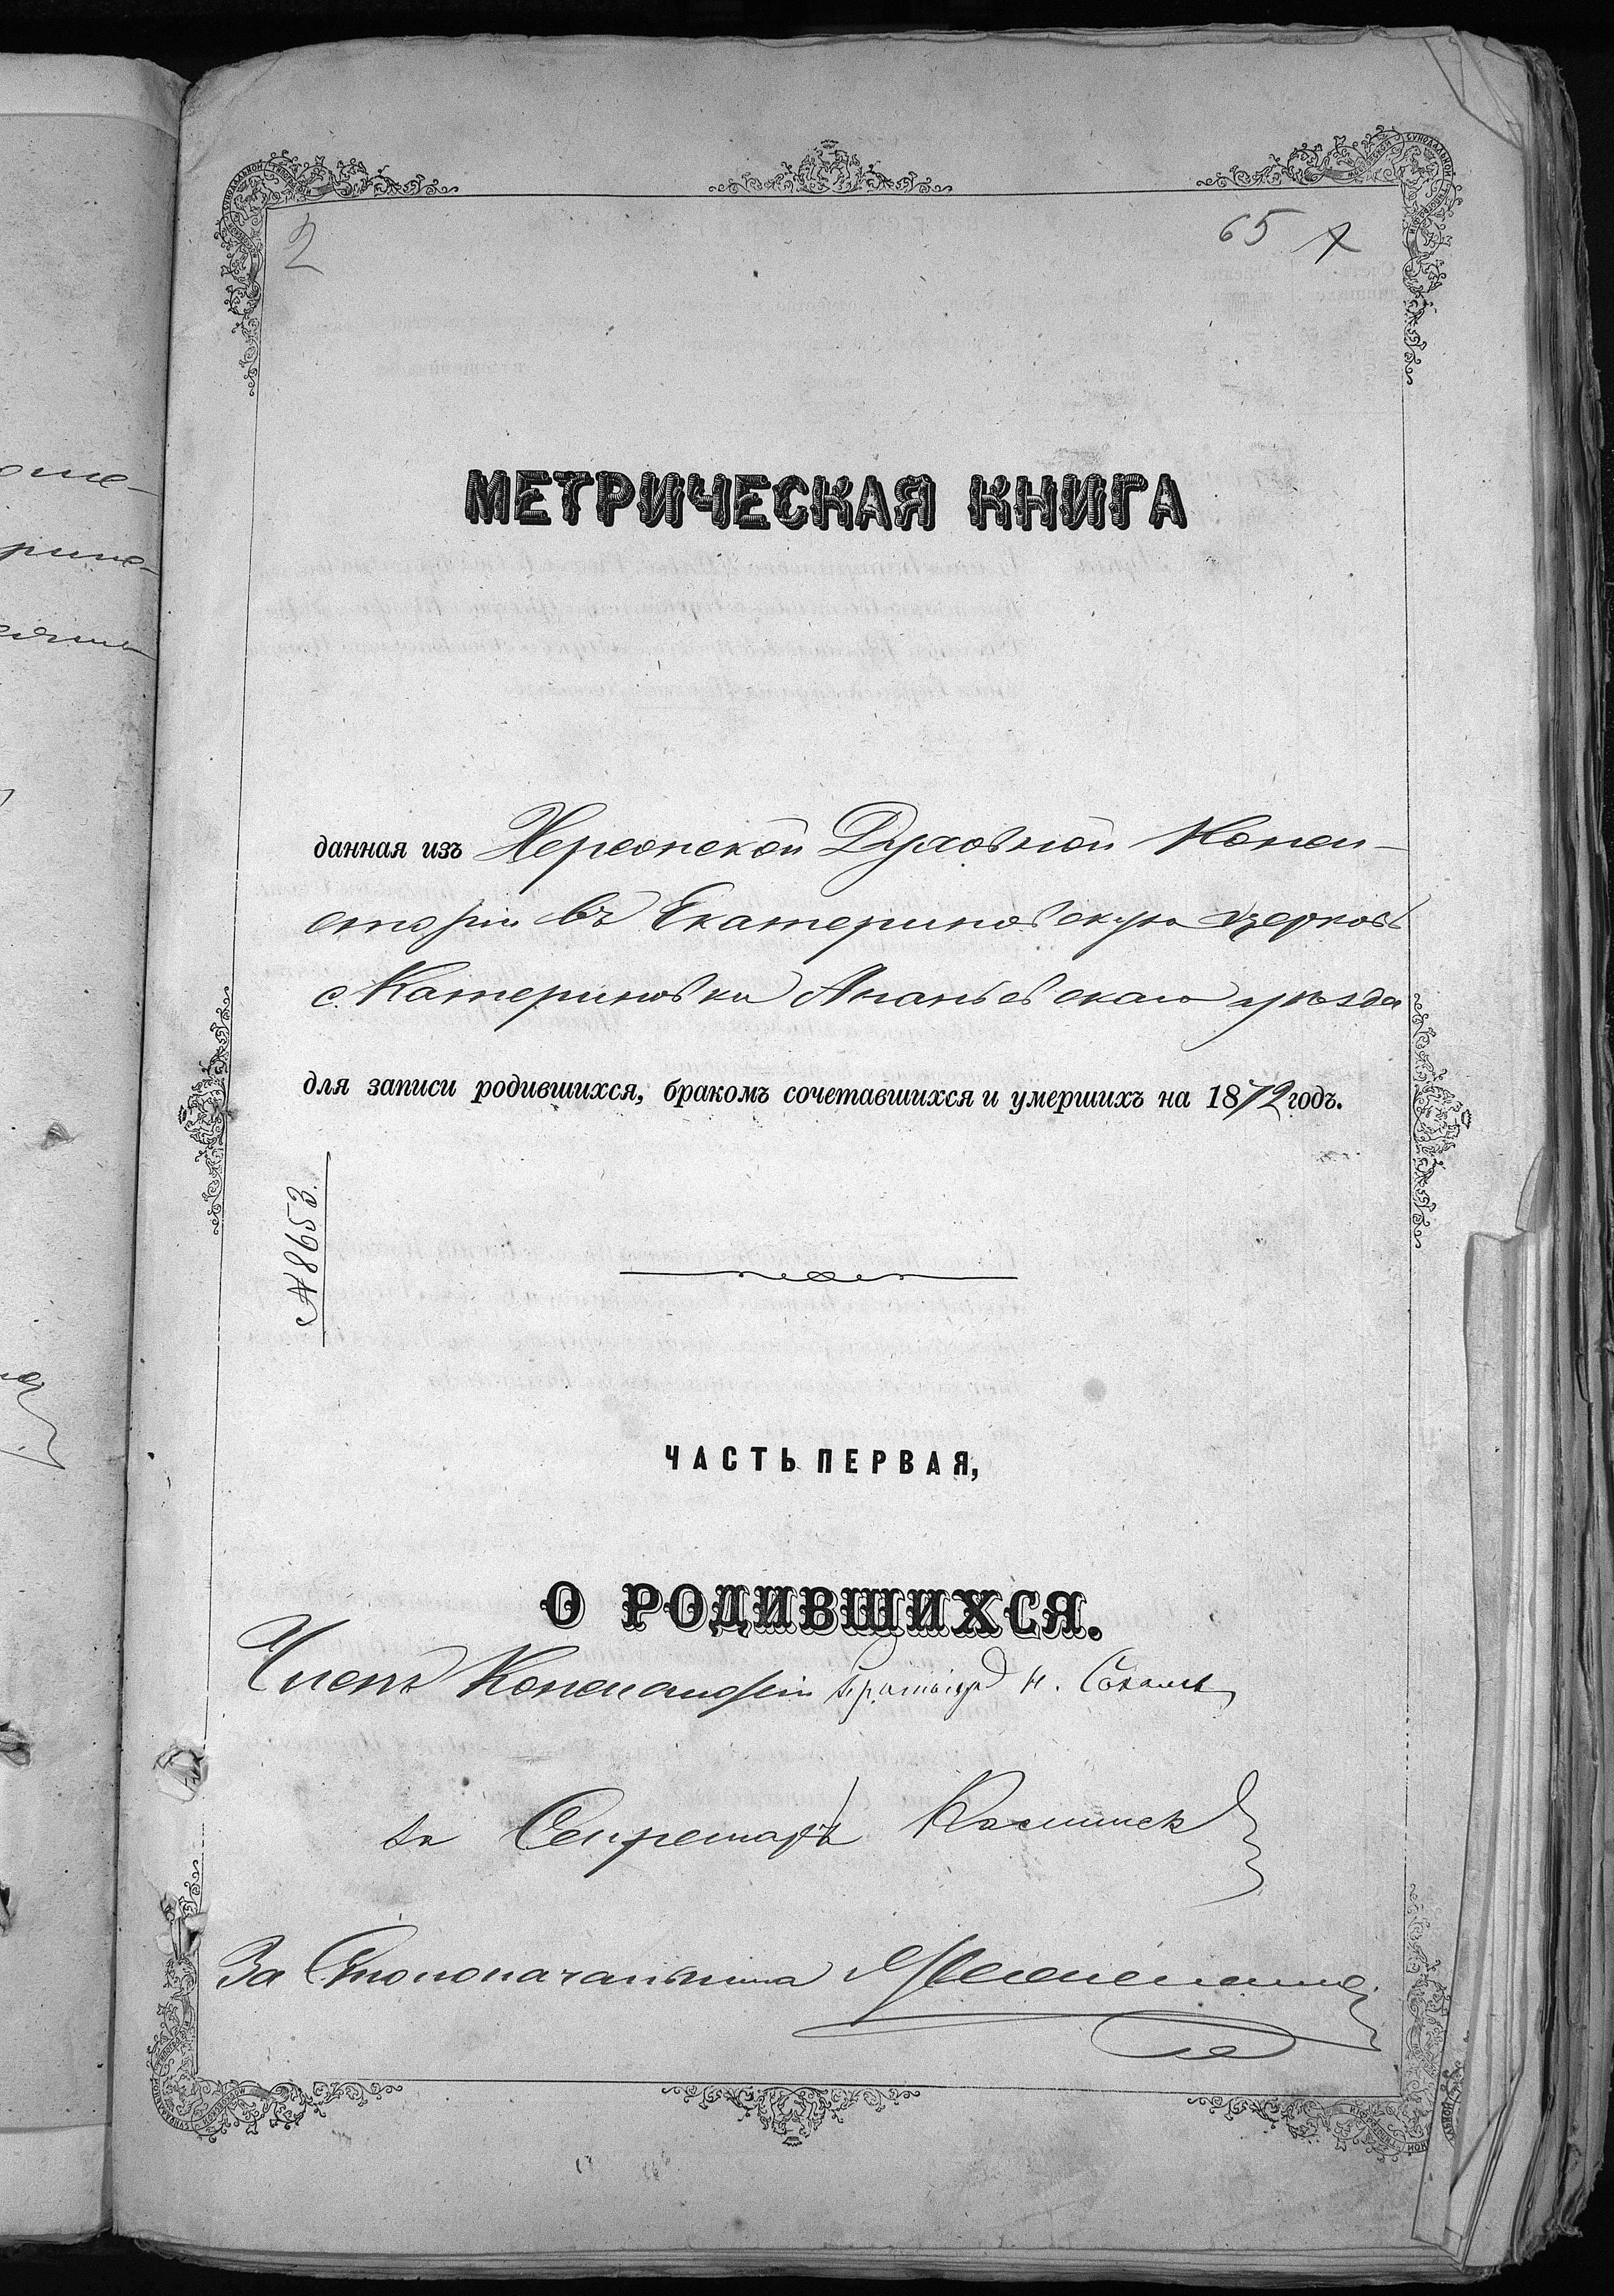 2
65
МЕТРИЧЕСКАЯ КНИГА
данная изъ Херсонской Духовной Конси-
сторіи въ Екатериновскую церковь
с. Катериновки Ананьевскаго уѣзда
для записи родившихся, бракомъ сочетавшихся и умершихъ на 1872 годъ.
№ 8653.
ЧАСТЬ ПЕРВАЯ,
О РОДИВШИХСЯ.
Членъ Консисторіи
Секретарь
За Столоначальника